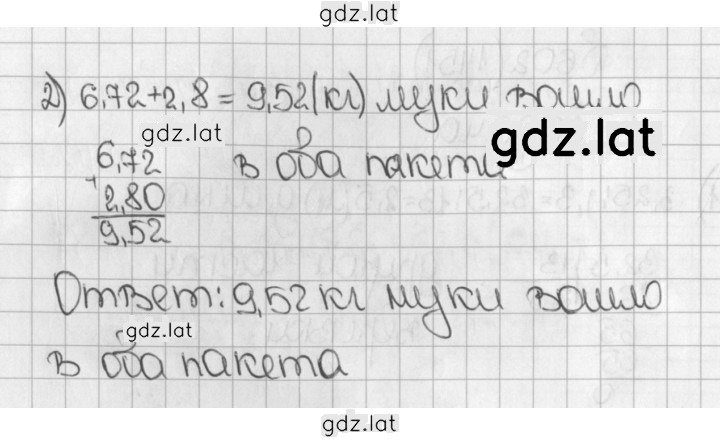 gdz.lat
2) 6,72+2,8 = 9,52(кг) муки вошло
gdz.lat
gdz.lat
6,72 в оба пакета
+
2,80
9,52
Ответ: 9,52 кг муки вошло
gdz.lat
в оба пакета
gdz.lat